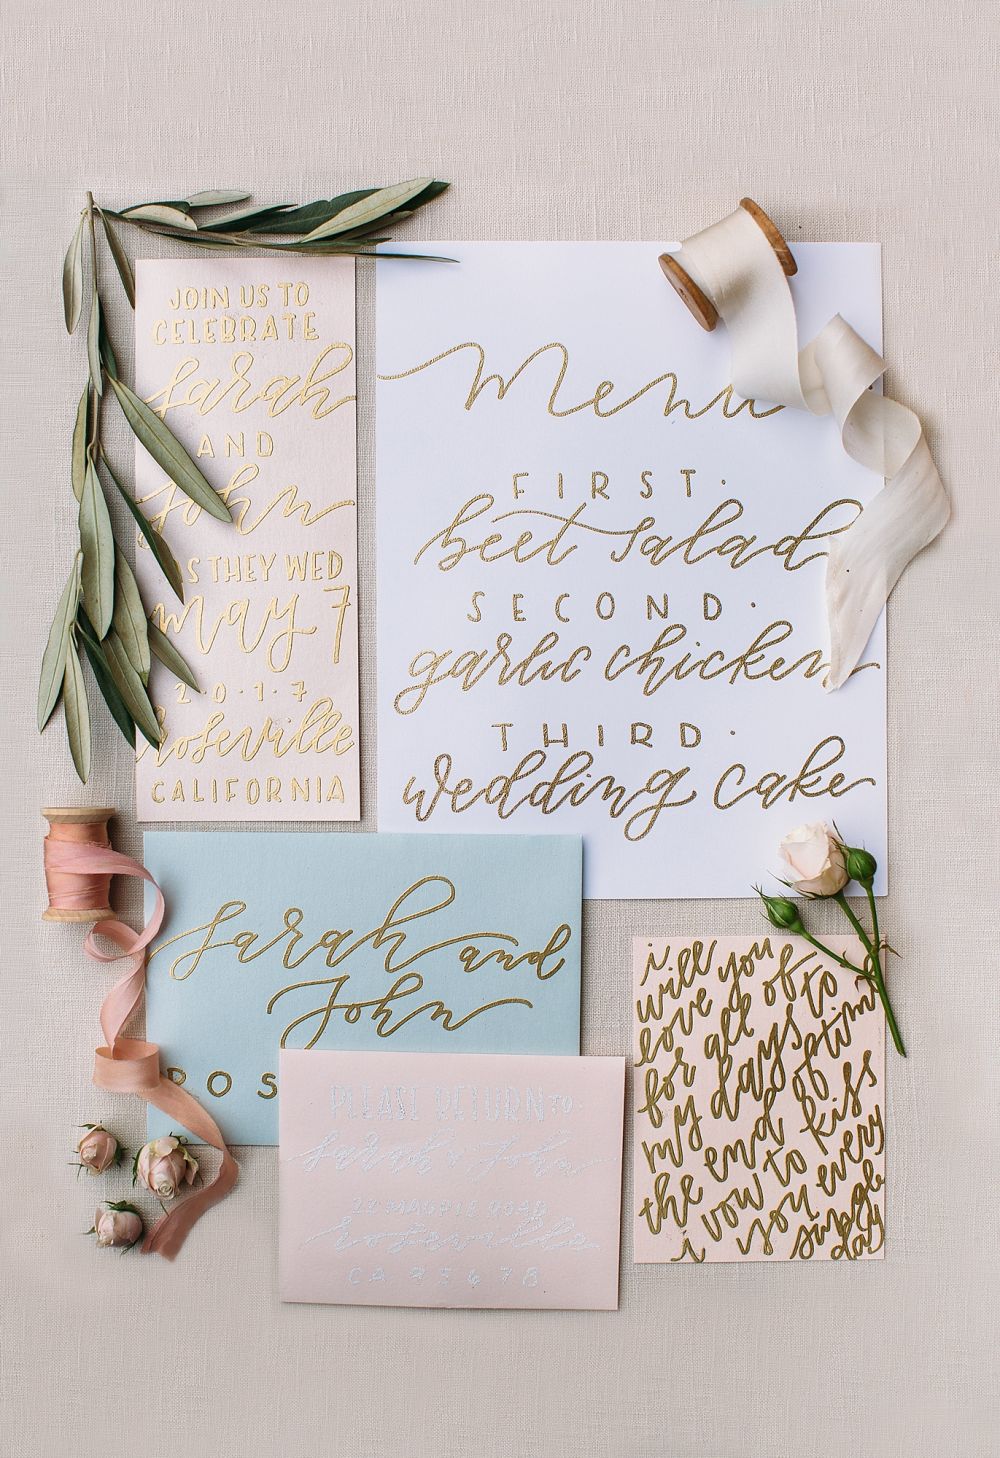 JOIN US TO
CELEBRATE
Sarah
AND
John
AS THEY WED
May 7
2·0·1·7
Roseville
CALIFORNIA
Menu
FIRST.
beet salad
SECOND.
garlic chicken
THIRD.
wedding cake
Sarah and
John
ROS
PLEASE RETURN TO.
Sarah & John
22 MAGPIE ROAD
Roseville
CA 95678
i
will you
love you
for all of
my days to
the end of time
i vow to kiss
you every
single
day